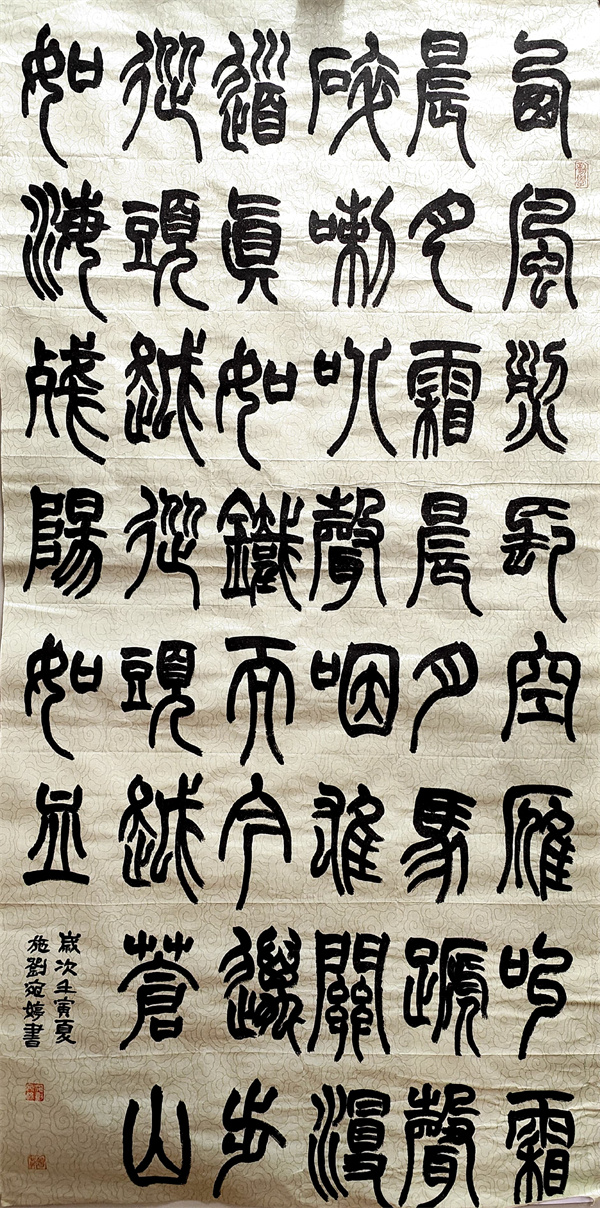 西風烈長空雁叫霜
晨月霜晨月馬蹏聲
碎喇叭聲咽雄關漫
道眞如鐵而今邁步
從頭越從頭越蒼山
如海殘陽如血
歲次壬寅夏
施劉宛婷書